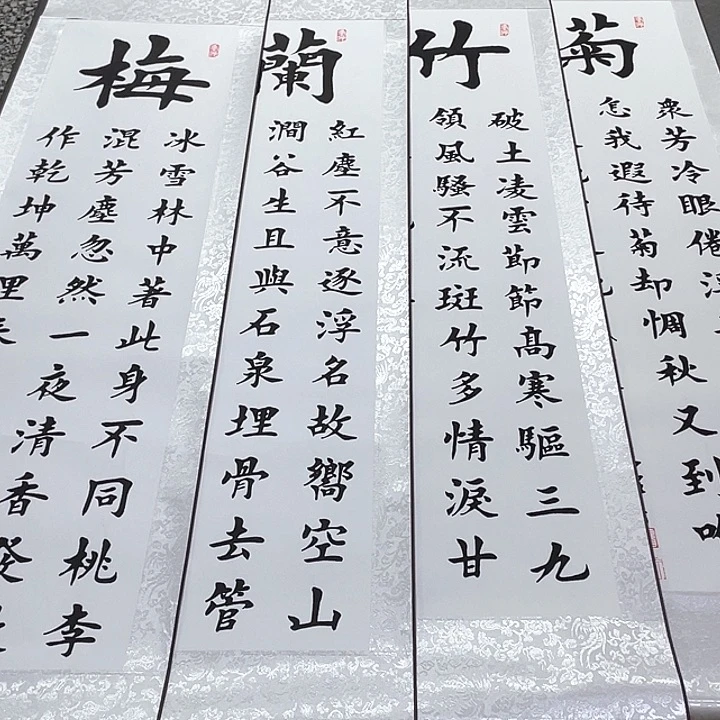 梅
冰雪林中著此身不同桃李
混芳塵忽然一夜清香發
作乾坤萬里
蘭
紅塵不意逐浮名故嚮空山
澗谷生且與石泉埋骨去管
竹
破土凌雲節節高寒驅三九
領風騷不流斑竹多情淚甘
菊
衆芳冷眼倦
怎我遐待菊却惆秋又到